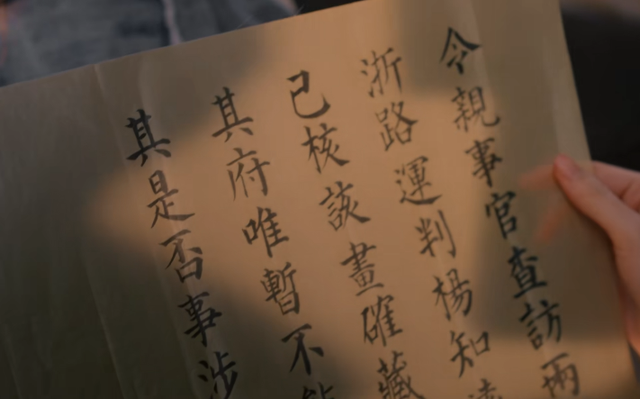 令親事官查訪兩
浙路運判楊知
已核該畫確藏
其府唯暫不能
其是否事涉